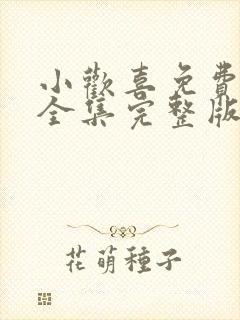 小歡喜免費
全集完整版
花萌種子